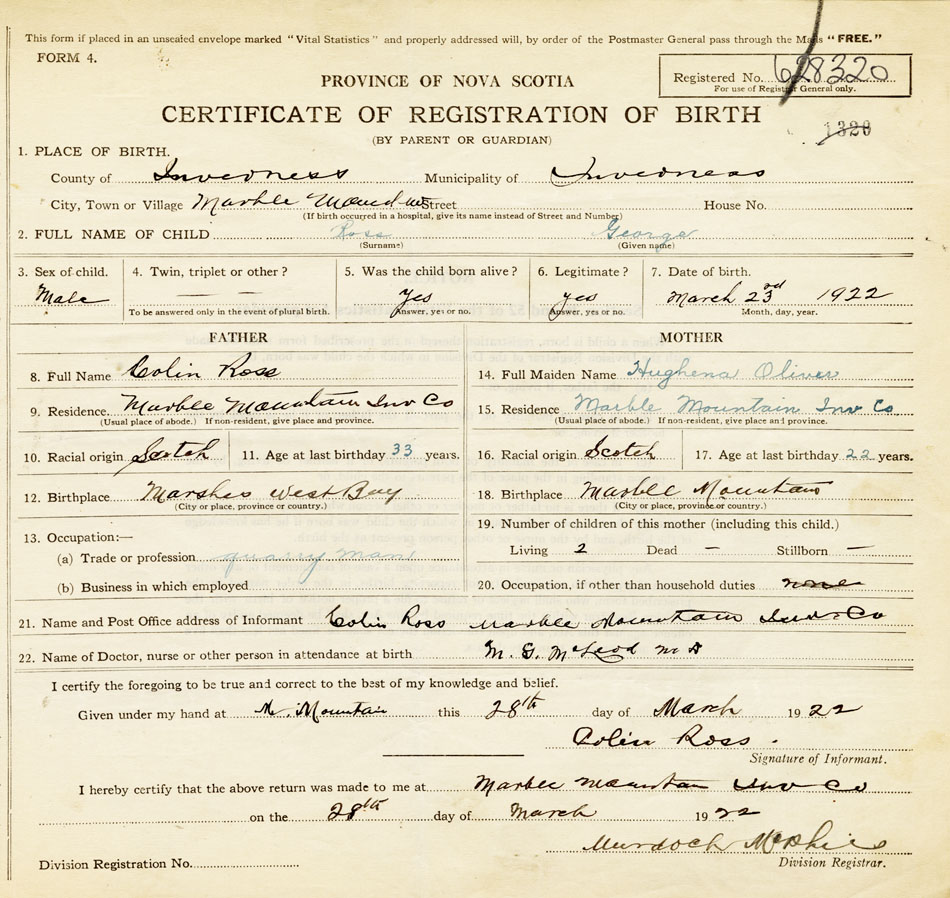 This form if placed in an unsealed envelope marked "Vital Statistics" and properly addressed will, by order of the Postmaster General pass through the Mails "FREE."
FORM 4.
Registered No. 628320
For use of Registrar General only.
PROVINCE OF NOVA SCOTIA
CERTIFICATE OF REGISTRATION OF BIRTH
1320
(BY PARENT OR GUARDIAN)
1. PLACE OF BIRTH.
County of Inverness Municipality of Inverness
City, Town or Village Marble Mountain Street House No.
(If birth occurred in a hospital, give its name instead of Street and Number)
2. FULL NAME OF CHILD Ross George
(Surname) (Given name)
3. Sex of child. 4. Twin, triplet or other? 5. Was the child born alive? 6. Legitimate? 7. Date of birth.
Male — — yes yes March 23rd 1922
To be answered only in the event of plural birth. Answer, yes or no. Answer, yes or no. Month, day, year.
FATHER MOTHER
8. Full Name Colin Ross 14. Full Maiden Name Hughena Oliver
9. Residence. Marble Mountain Inv Co 15. Residence Marble Mountain Inv Co
(Usual place of abode.) If non-resident, give place and province. (Usual place of abode.) If non-resident, give place and province.
10. Racial origin Scotch 11. Age at last birthday 33 years. 16. Racial origin Scotch 17. Age at last birthday 22 years.
12. Birthplace Marshes West Bay 18. Birthplace Marble Mountain
(City or place, province or country.) (City or place, province or country.)
19. Number of children of this mother (including this child.)
13. Occupation:—
Living 2 Dead — Stillborn —
(a) Trade or profession quarry man
(b) Business in which employed 20. Occupation, if other than household duties none
21. Name and Post Office address of Informant Colin Ross Marble Mountain Inv Co
22. Name of Doctor, nurse or other person in attendance at birth M. G. McLeod M D
I certify the foregoing to be true and correct to the best of my knowledge and belief.
Given under my hand at M. Mountain this 28th day of March 1922
Colin Ross.
Signature of Informant.
I hereby certify that the above return was made to me at Marble Mountain Inv Co
on the 28th day of March 1922
Murdoch McPhie
Division Registration No. Division Registrar.